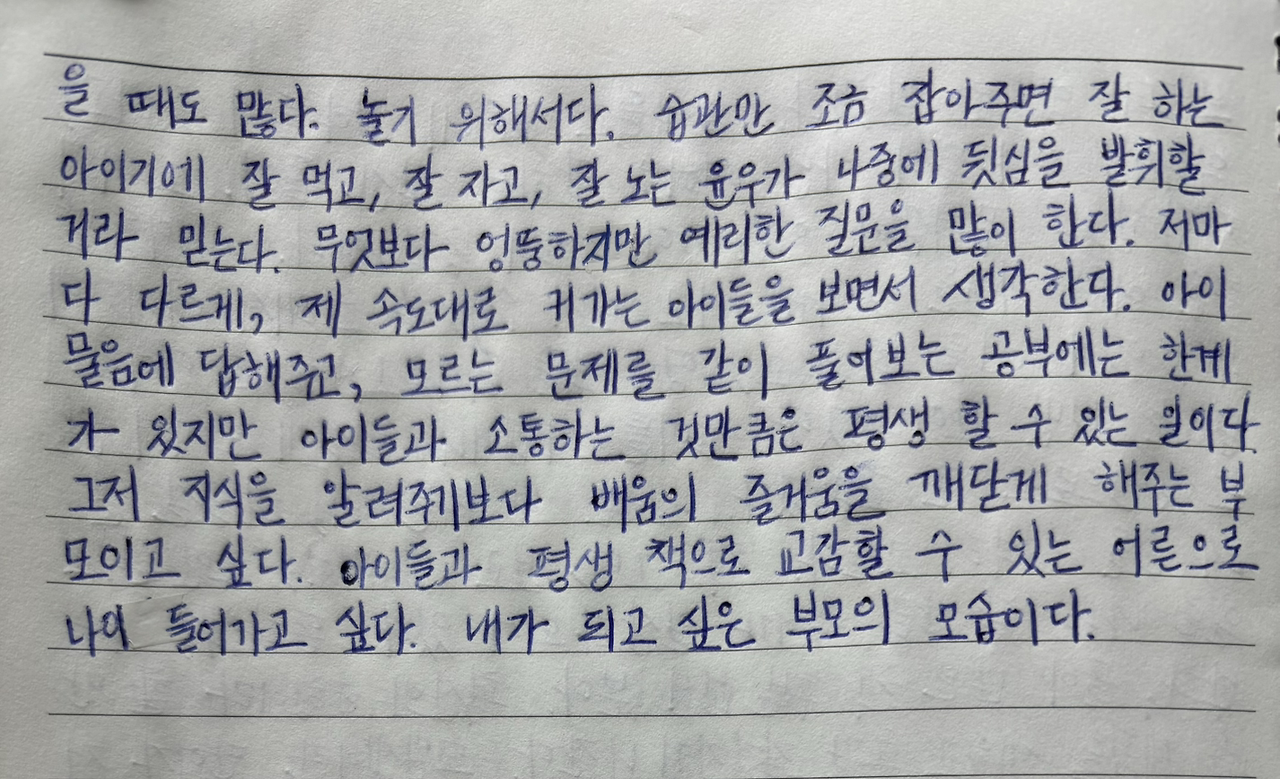 을 때도 많다. 놀기 위해서다. 습관만 조금 잡아주면 잘 하는
아이기에 잘 먹고, 잘 자고, 잘 노는 윤우가 나중에 뒷심을 발휘할
거라 믿는다. 무엇보다 엉뚱하지만 예리한 질문을 많이 한다. 저마
다 다르게, 제 속도대로 커가는 아이들을 보면서 생각한다. 아이
물음에 답해주고, 모르는 문제를 같이 풀어보는 공부에는 한계
가 있지만 아이들과 소통하는 것만큼은 평생 할 수 있는 일이다
그저 지식을 알려주기보다 배움의 즐거움을 깨닫게 해주는 부
모이고 싶다. 아이들과 평생 책으로 교감할 수 있는 어른으로
나이 들어가고 싶다. 내가 되고 싶은 부모의 모습이다.